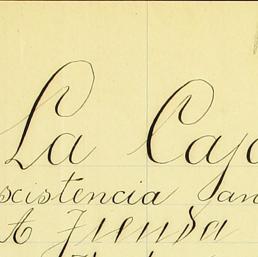 La Caja
Existencia an
A Tienda